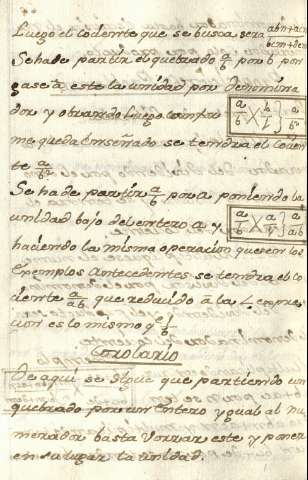 Luego el codente que se busca sera abn+acn
bcm+dcm
Se ha de partir el quebrado a/b por b pon
gase à este la unidad por denomina
dor y obrando luego conform
ma queda enseñado se tendra el codien
te a/b²
a/b × b/1 } a/b²
Se ha de partir a/b por a poniendo la
unidad bajo del entero a y
a/b × a/1 } a/ab
haciendo la misma operacion que en los
Exemplos Antecedentes se tendra el co
diente a/ab que reducido à la expre
sion es lo mismo q.e 1/b
Corolario
De aqui se sigue que partiendo un
quebrado por un Entero ygual al nu
merador basta vorrar este y poner
en su lugar la unidad.